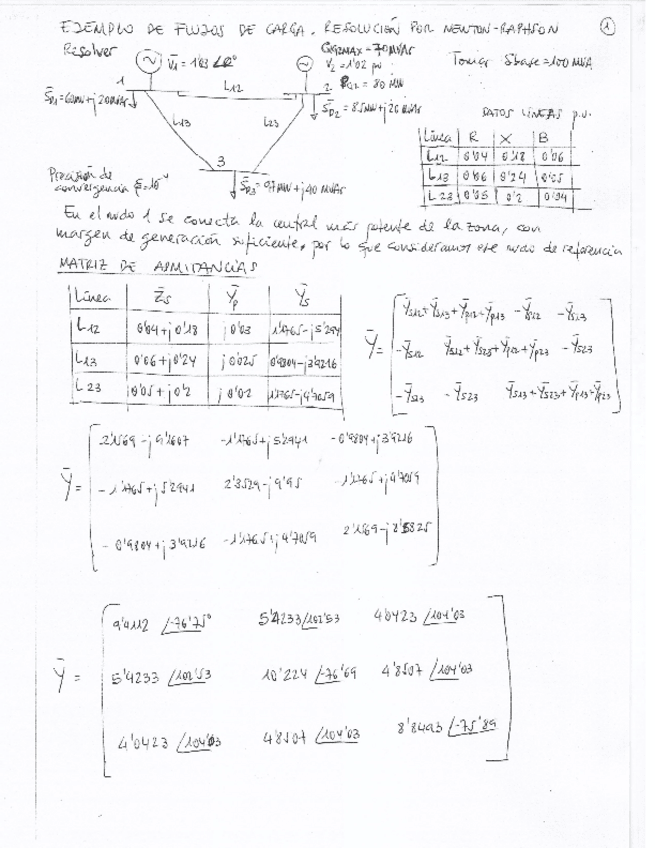 EJEMPLO DE FLUJOS DE CARGA. RESOLUCIÓN POR NEWTON-RAPHSON
1
Resolver
V̄1 = 1'03 ∠0°
QG2MAX = 70MVAr
V2 = 1'02 pu
PG2 = 80 MW
Tomar Sbase = 100 MVA
1
L12
2
S̄D1 = 60MW + j20MVAr
S̄D2 = 85MW + j20 MVAr
L13
L23
3
S̄D3 = 97MW + j40 MVAr
DATOS LÍNEAS p.u.
Línea R X B
L12 0'04 0'18 0'06
L13 0'06 0'24 0'05
L23 0'05 0'2 0'04
Precisión de
convergencia
En el nudo 1 se conecta la central más potente de la zona, con
margen de generación suficiente, por lo que consideramos este nudo de referencia
MATRIZ DE ADMITANCIAS
Línea Z̄s Ȳp Ȳs
L12 0'04+j0'18 j0'03 1'1765-j5'294
L13 0'06+j0'24 j0'025 0'9804-j3'9216
L23 0'05+j0'2 j0'02 1'1765-j4'7059
Ȳ =
Ȳs12+Ȳs13+Ȳp12+Ȳp13 -Ȳs12 -Ȳs13
-Ȳs12 Ȳs12+Ȳs23+Ȳp12+Ȳp23 -Ȳs23
-Ȳs13 -Ȳs23 Ȳs13+Ȳs23+Ȳp13+Ȳp23
Ȳ =
2'1569-j9'1607 -1'1765+j5'2941 -0'9804+j3'9216
-1'1765+j5'2941 2'3529-j9'95 -1'1765+j4'7059
-0'9804+j3'9216 -1'1765+j4'7059 2'1569-j8'5825
Ȳ =
9'4112 /-76'75° 5'4233 /102'53 4'0423 /104'03
5'4233 /102'53 10'224 /-76'69 4'8507 /104'03
4'0423 /104'03 4'8507 /104'03 8'8493 /-75'89